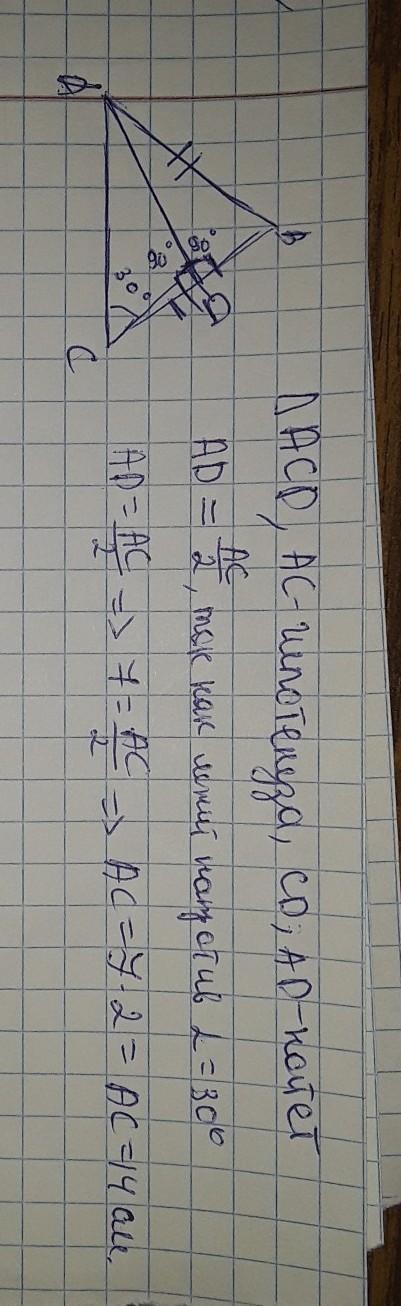 A
B
C
D
90°
90°
30°
△ACD, AC-гипотенуза, CD; AD-катет
AD = AC/2, так как лежит напротив ∠=30°
AD = AC/2 => 7 = AC/2 => AC = 7·2 = AC = 14 см.